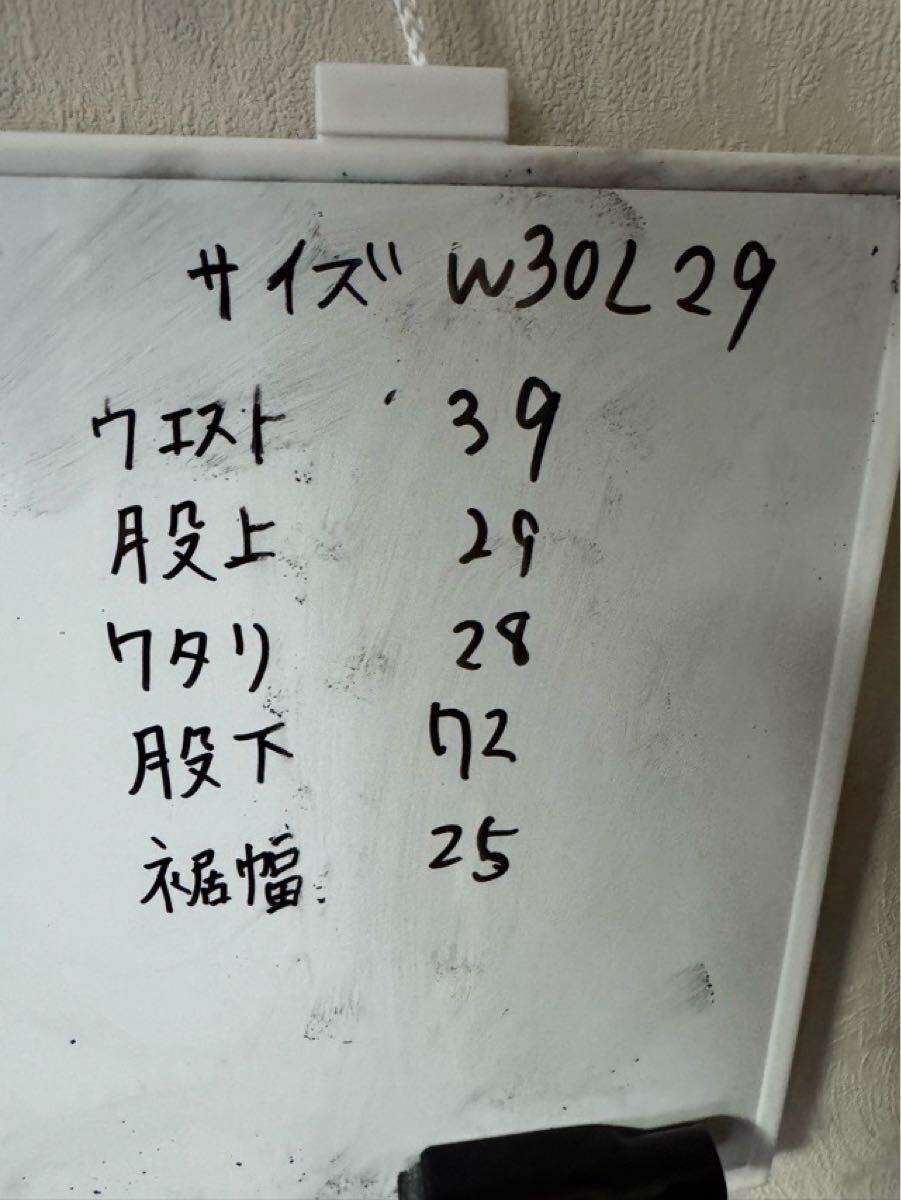 サイズ W30L29
ウエスト 39
股上 29
ワタリ 28
股下 72
裾幅 25